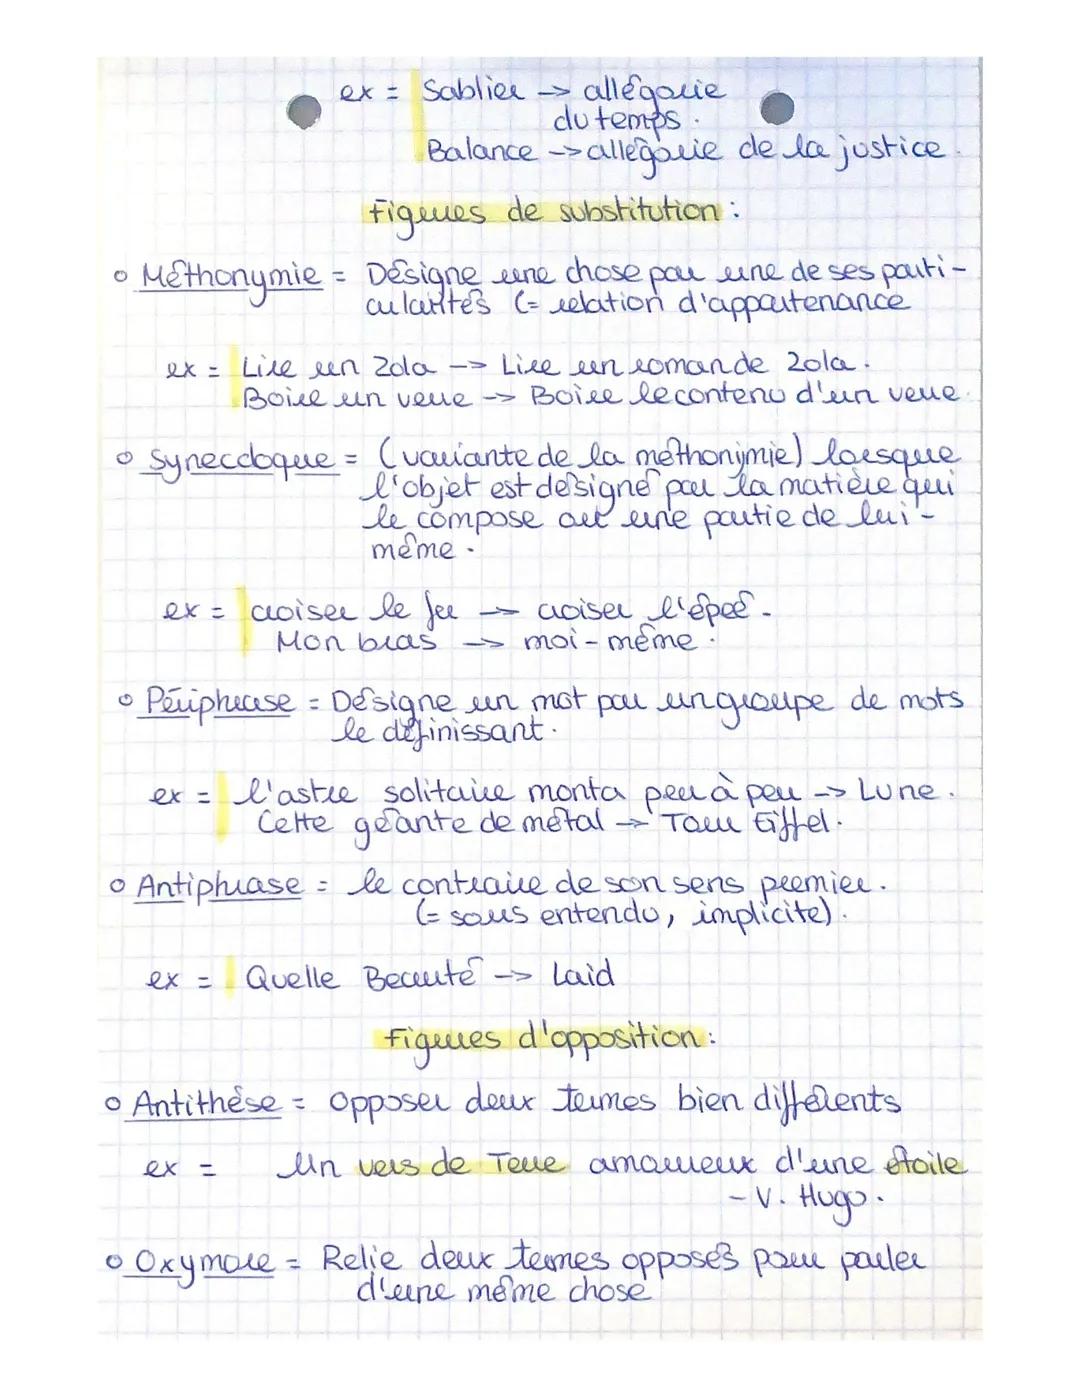 ex = Sablier -> allégorie
du temps.
Balance -> allégorie de la justice.
Figures de substitution :
Méthonymie = Désigne une chose par une de ses parti-
cularités (= relation d'appartenance
ex = Lire un Zola -> Lire un roman de Zola.
Boire un verre -> Boire le contenu d'un verre.
Synecdoque = (variante de la méthonymie) lorsque
l'objet est désigné par la matière qui
le compose ou une partie de lui-
même.
ex = croiser le fer -> croiser l'épeé.
Mon bras -> moi-même.
Périphrase = Désigne un mot par un groupe de mots
le définissant.
ex = l'astre solitaire monta peu à peu -> Lune.
Cette géante de métal -> Tour Eiffel.
Antiphrase = le contraire de son sens premier.
(= sous entendu, implicite).
ex = Quelle Beauté -> Laid
Figures d'opposition :
Antithèse = opposer deux termes bien différents
ex = Un vers de Terre amoureux d'une étoile
- V. Hugo.
Oxymore = Relie deux termes opposés pour parler
d'une même chose